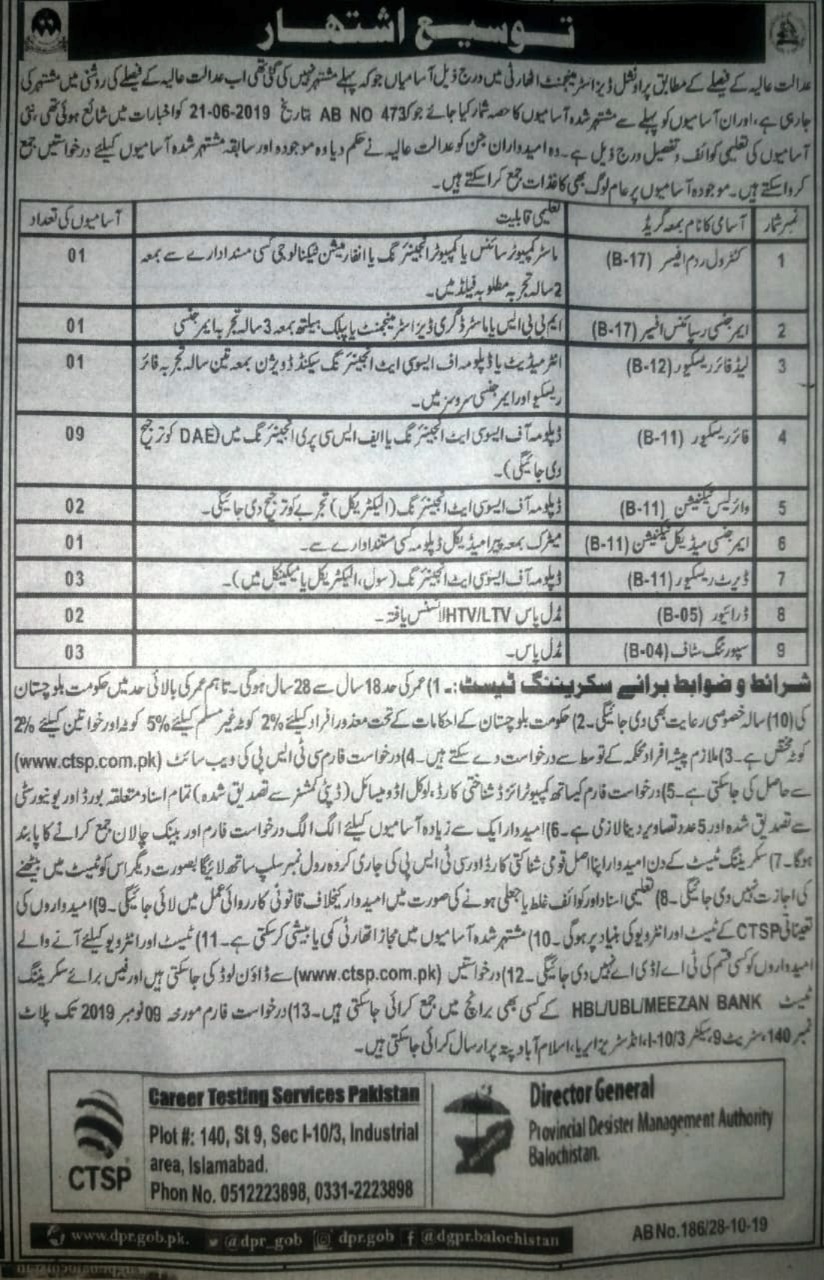 توسیع اشتہار
عدالت عالیہ کے فیصلے کے مطابق پراونشل ڈیزاسٹر مینجمنٹ اتھارٹی میں درج ذیل آسامیاں جو کہ پہلے مشتہر نہیں کی گئی تھی اب عدالت عالیہ کے فیصلے کی روشنی میں مشتہر کی
جا رہی ہے، اور ان آسامیوں کو پہلے سے مشتہر شدہ آسامیوں کا حصہ شمار کیا جائے جو کہ AB NO 473 بتاریخ 21-06-2019 کو اخبارات میں شائع ہوئی تھی، نئی
آسامیوں کی تعلیمی کوائف و تفصیل درج ذیل ہے۔ وہ امیدواران جن کو عدالت عالیہ نے حکم دیا وہ موجودہ اور سابقہ مشتہر شدہ آسامیوں کیلئے درخواستیں جمع
کروا سکتے ہیں۔ موجودہ آسامیوں پر عام لوگ بھی کاغذات جمع کرا سکتے ہیں۔
نمبر شمار آسامی کا نام بمعہ گریڈ تعلیمی قابلیت آسامیوں کی تعداد
1 کنٹرول روم آفیسر (B-17) ماسٹر کمپیوٹر سائنس یا کمپیوٹر انجینئرنگ یا انفارمیشن ٹیکنالوجی کسی مستند ادارے سے بمعہ 01
2 سالہ تجربہ مطلوبہ فیلڈ میں۔
2 ایمرجنسی رسپانس آفیسر (B-17) ایم بی بی ایس یا ماسٹر ڈگری ڈیزاسٹر مینجمنٹ یا پبلک ہیلتھ بمعہ 3 سالہ تجربہ ایمرجنسی 01
3 لیڈ فائر ریسکیور (B-12) انٹرمیڈیٹ یا ڈپلومہ اف ایسوسی ایٹ انجینئرنگ سیکنڈ ڈویژن بمعہ تین سالہ تجربہ فائر 01
ریسکیو اور ایمرجنسی سروسز میں۔
4 فائر ریسکیور (B-11) ڈپلومہ آف ایسوسی ایٹ انجینئرنگ یا ایف ایس سی پری انجینئرنگ میں (DAE کو ترجیح 09
دی جائیگی)۔
5 وائرلیس ٹیکنیشن (B-11) ڈپلومہ آف ایسوسی ایٹ انجینئرنگ (الیکٹریکل) تجربے کو ترجیح دی جائیگی۔ 02
6 ایمرجنسی میڈیکل ٹیکنیشن (B-11) میٹرک بمعہ پیرا میڈیکل ڈپلومہ کسی مستند ادارے سے۔ 01
7 ڈیزٹ ریسکیور (B-11) ڈپلومہ آف ایسوسی ایٹ انجینئرنگ (سول، الیکٹریکل یا میکینکل میں)۔ 03
8 ڈرائیور (B-05) مڈل پاس HTV/LTV لائسنس یافتہ۔ 02
9 سپورٹنگ سٹاف (B-04) مڈل پاس۔ 03
شرائط و ضوابط برائے سکریننگ ٹیسٹ:۔ 1) عمر کی حد 18 سال سے 28 سال ہوگی۔ تاہم عمر کی بالائی حد میں حکومت بلوچستان
کی (10) سالہ خصوصی رعایت بھی دی جائیگی۔ 2) حکومت بلوچستان کے احکامات کے تحت معذور افراد کیلئے 2% کوٹہ غیر مسلم کیلئے 5% کوٹہ اور خواتین کیلئے 2%
کوٹہ مختص ہے۔ 3) ملازم پیشہ افراد محکمہ کے توسط سے درخواست دے سکتے ہیں۔ 4) درخواست فارم سی ٹی ایس پی کی ویب سائٹ (www.ctsp.com.pk)
سے حاصل کی جاسکتی ہے۔ 5) درخواست فارم کیساتھ کمپیوٹرائزڈ شناختی کارڈ، لوکل/ڈومیسائل (ڈپٹی کمشنر سے تصدیق شدہ) تمام اسناد متعلقہ بورڈ اور یونیورسٹی
سے تصدیق شدہ اور 5 عدد تصاویر دینا لازمی ہے۔ 6) امیدوار ایک سے زیادہ آسامیوں کیلئے الگ الگ درخواست فارم اور بینک چالان جمع کرانے کا پابند
ہوگا۔ 7) سکریننگ ٹیسٹ کے دن امیدوار اپنا اصل قومی شناختی کارڈ اور سی ٹی ایس پی کی جاری کردہ رول نمبر سلپ ساتھ لائیگا بصورت دیگر اس کو ٹیسٹ میں بیٹھنے
کی اجازت نہیں دی جائیگی۔ 8) تعلیمی اسناد اور کوائف غلط یا جعلی ہونے کی صورت میں امیدوار کیخلاف قانونی کارروائی عمل میں لائی جائیگی۔ 9) امیدواروں کی
تعیناتی CTSP کے ٹیسٹ اور انٹرویو کی بنیاد پر ہوگی۔ 10) مشتہر شدہ آسامیوں میں مجاز اتھارٹی کمی یا بیشی کر سکتی ہے۔ 11) ٹیسٹ اور انٹرویو کیلئے آنے والے
امیدواروں کو کسی قسم کی ٹی اے/ڈی اے نہیں دی جائیگی۔ 12) درخواستیں (www.ctsp.com.pk) سے ڈاؤن لوڈ کی جاسکتی ہیں اور فیس برائے سکریننگ
ٹیسٹ HBL/UBL/MEEZAN BANK کے کسی بھی برانچ میں جمع کرائی جاسکتی ہیں۔ 13) درخواست فارم مورخہ 09 نومبر 2019 تک پلاٹ
نمبر 140، سٹریٹ 9، سیکٹر I-10/3، انڈسٹریز ایریا، اسلام آباد پتہ پر ارسال کرائی جاسکتی ہیں۔
CTSP
Career Testing Services Pakistan
Plot #: 140, St 9, Sec I-10/3, Industrial
area, Islamabad.
Phon No. 0512223898, 0331-2223898
Director General
Provincial Desister Management Authority
Balochistan.
www.dpr.gob.pk. @dpr_gob dpr.gob @dgpr.balochistan
AB No.186/28-10-19